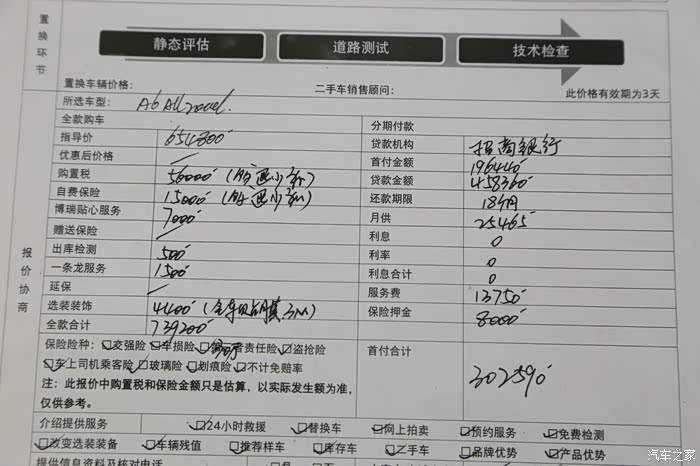 置换环节
静态评估 道路测试 技术检查
置换车辆价格: 二手车销售顾问: 此价格有效期为3天
报价协商
所选车型: A6 Allroad.
全款购车 分期付款
指导价 654800 贷款机构 招商银行
优惠后价格 首付金额 196440
购置税 56000 贷款金额 458360
自费保险 15000 还款期限 18个月
博瑞贴心服务 7000 月供 25465
赠送保险 利息 0
出库检测 500 利率 0
一条龙服务 1500 利息合计 0
延保 服务费 13750
选装装饰 4400 (全车贴膜 3M) 保险押金 8000
全款合计 739200
保险险种: 交强险 车损险 三者责任险 盗抢险 首付合计
车上司机乘客险 玻璃险 划痕险 不计免赔率 302590
注: 此报价中购置税和保险金额只是估算,以实际发生额为准,
仅供参考。
介绍提供服务 24小时救援 替换车 网上拍卖 预约服务 免费检测
改变选装装备 车辆残值 推荐样车 库存车 二手车 品牌优势 产品优势
提供信息资料及核对电话
汽车之家